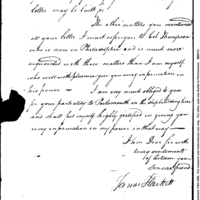 letter may be
The other matters you mentioned
in your letter I must refer you to Col Thompson
who is now in Philadelphia and is much more
acquainted with these matters than I am myself
who will with pleasure give you every information in
his power —
I am very much obliged to you
for your
and shall feel myself highly gratified in giving you
any information in my power in that way —
I am Dear Sir with
every sentiment
of esteem your
sincere friend
James